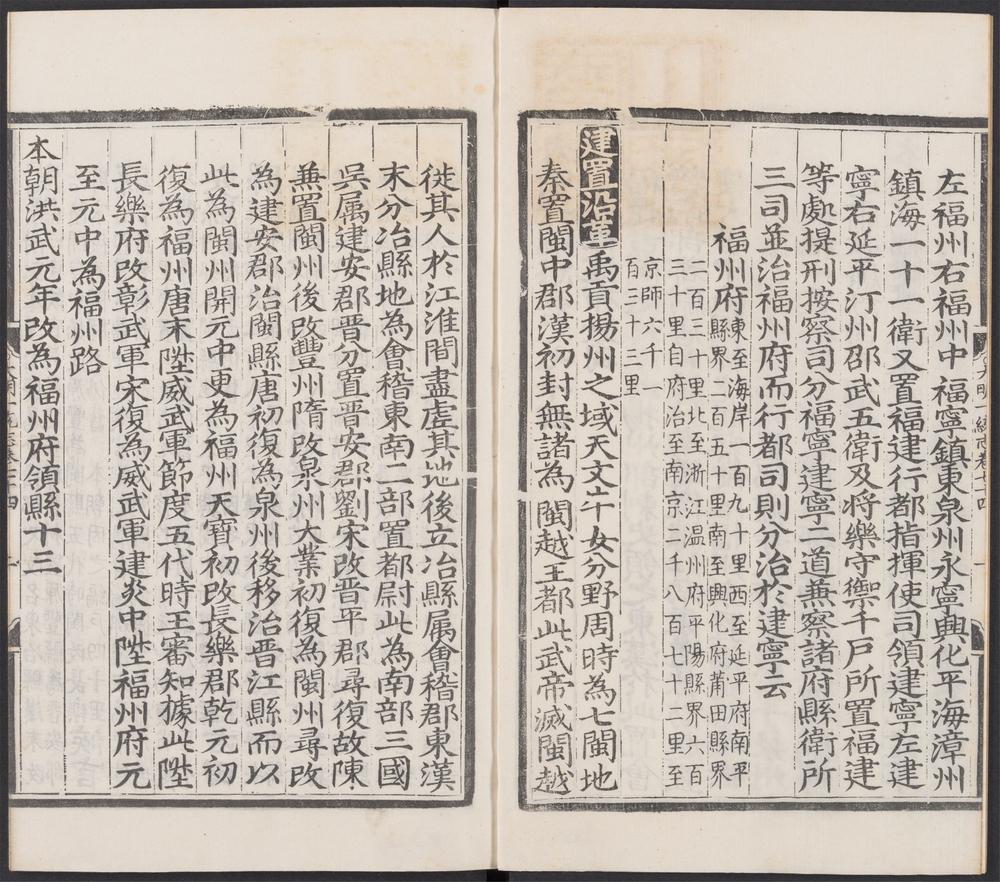 左福州右福州中　福寧鎮東泉州永寧興化平海漳州
鎮海一十一衛又置福建行都指揮使司領建寧左建
寧右延平汀州邵武五衛及將樂守禦千戶所置福建
等處提刑按察司分福寧建寧二道兼察諸府縣衛所
三司並治福州府而行都司則分治於建寧云
福州府
東至海岸一百九十里西至延平府南平
縣界二百五十里南至興化府莆田縣界
二百三十里北至浙江温州府平陽縣界六百
三十里自府治至南京二千八百七十二里至
京師六千一
百三十三里
建置沿革
禹貢揚州之域天文牛女分野周時為七閩地
秦置閩中郡漢初封無諸為閩越王都此武帝滅閩越
大明一統志卷七十四
一
徙其人於江淮間盡虛其地後立冶縣属會稽郡東漢
末分冶縣地為會稽東南二部置都尉此為南部三國
吳属建安郡晉分置晉安郡劉宋改晉平郡尋復故陳
兼置閩州後改豐州隋改泉州大業初復為閩州尋改
為建安郡治閩縣唐初復為泉州後移治晉江縣而以
此為閩州開元中更為福州天寶初改長樂郡乾元初
復為福州唐末陞威武軍節度五代時王審知據此陞
長樂府改彰武軍宋復為威武軍建炎中陞福州府元
至元中為福州路
本朝洪武元年改為福州府領縣十三